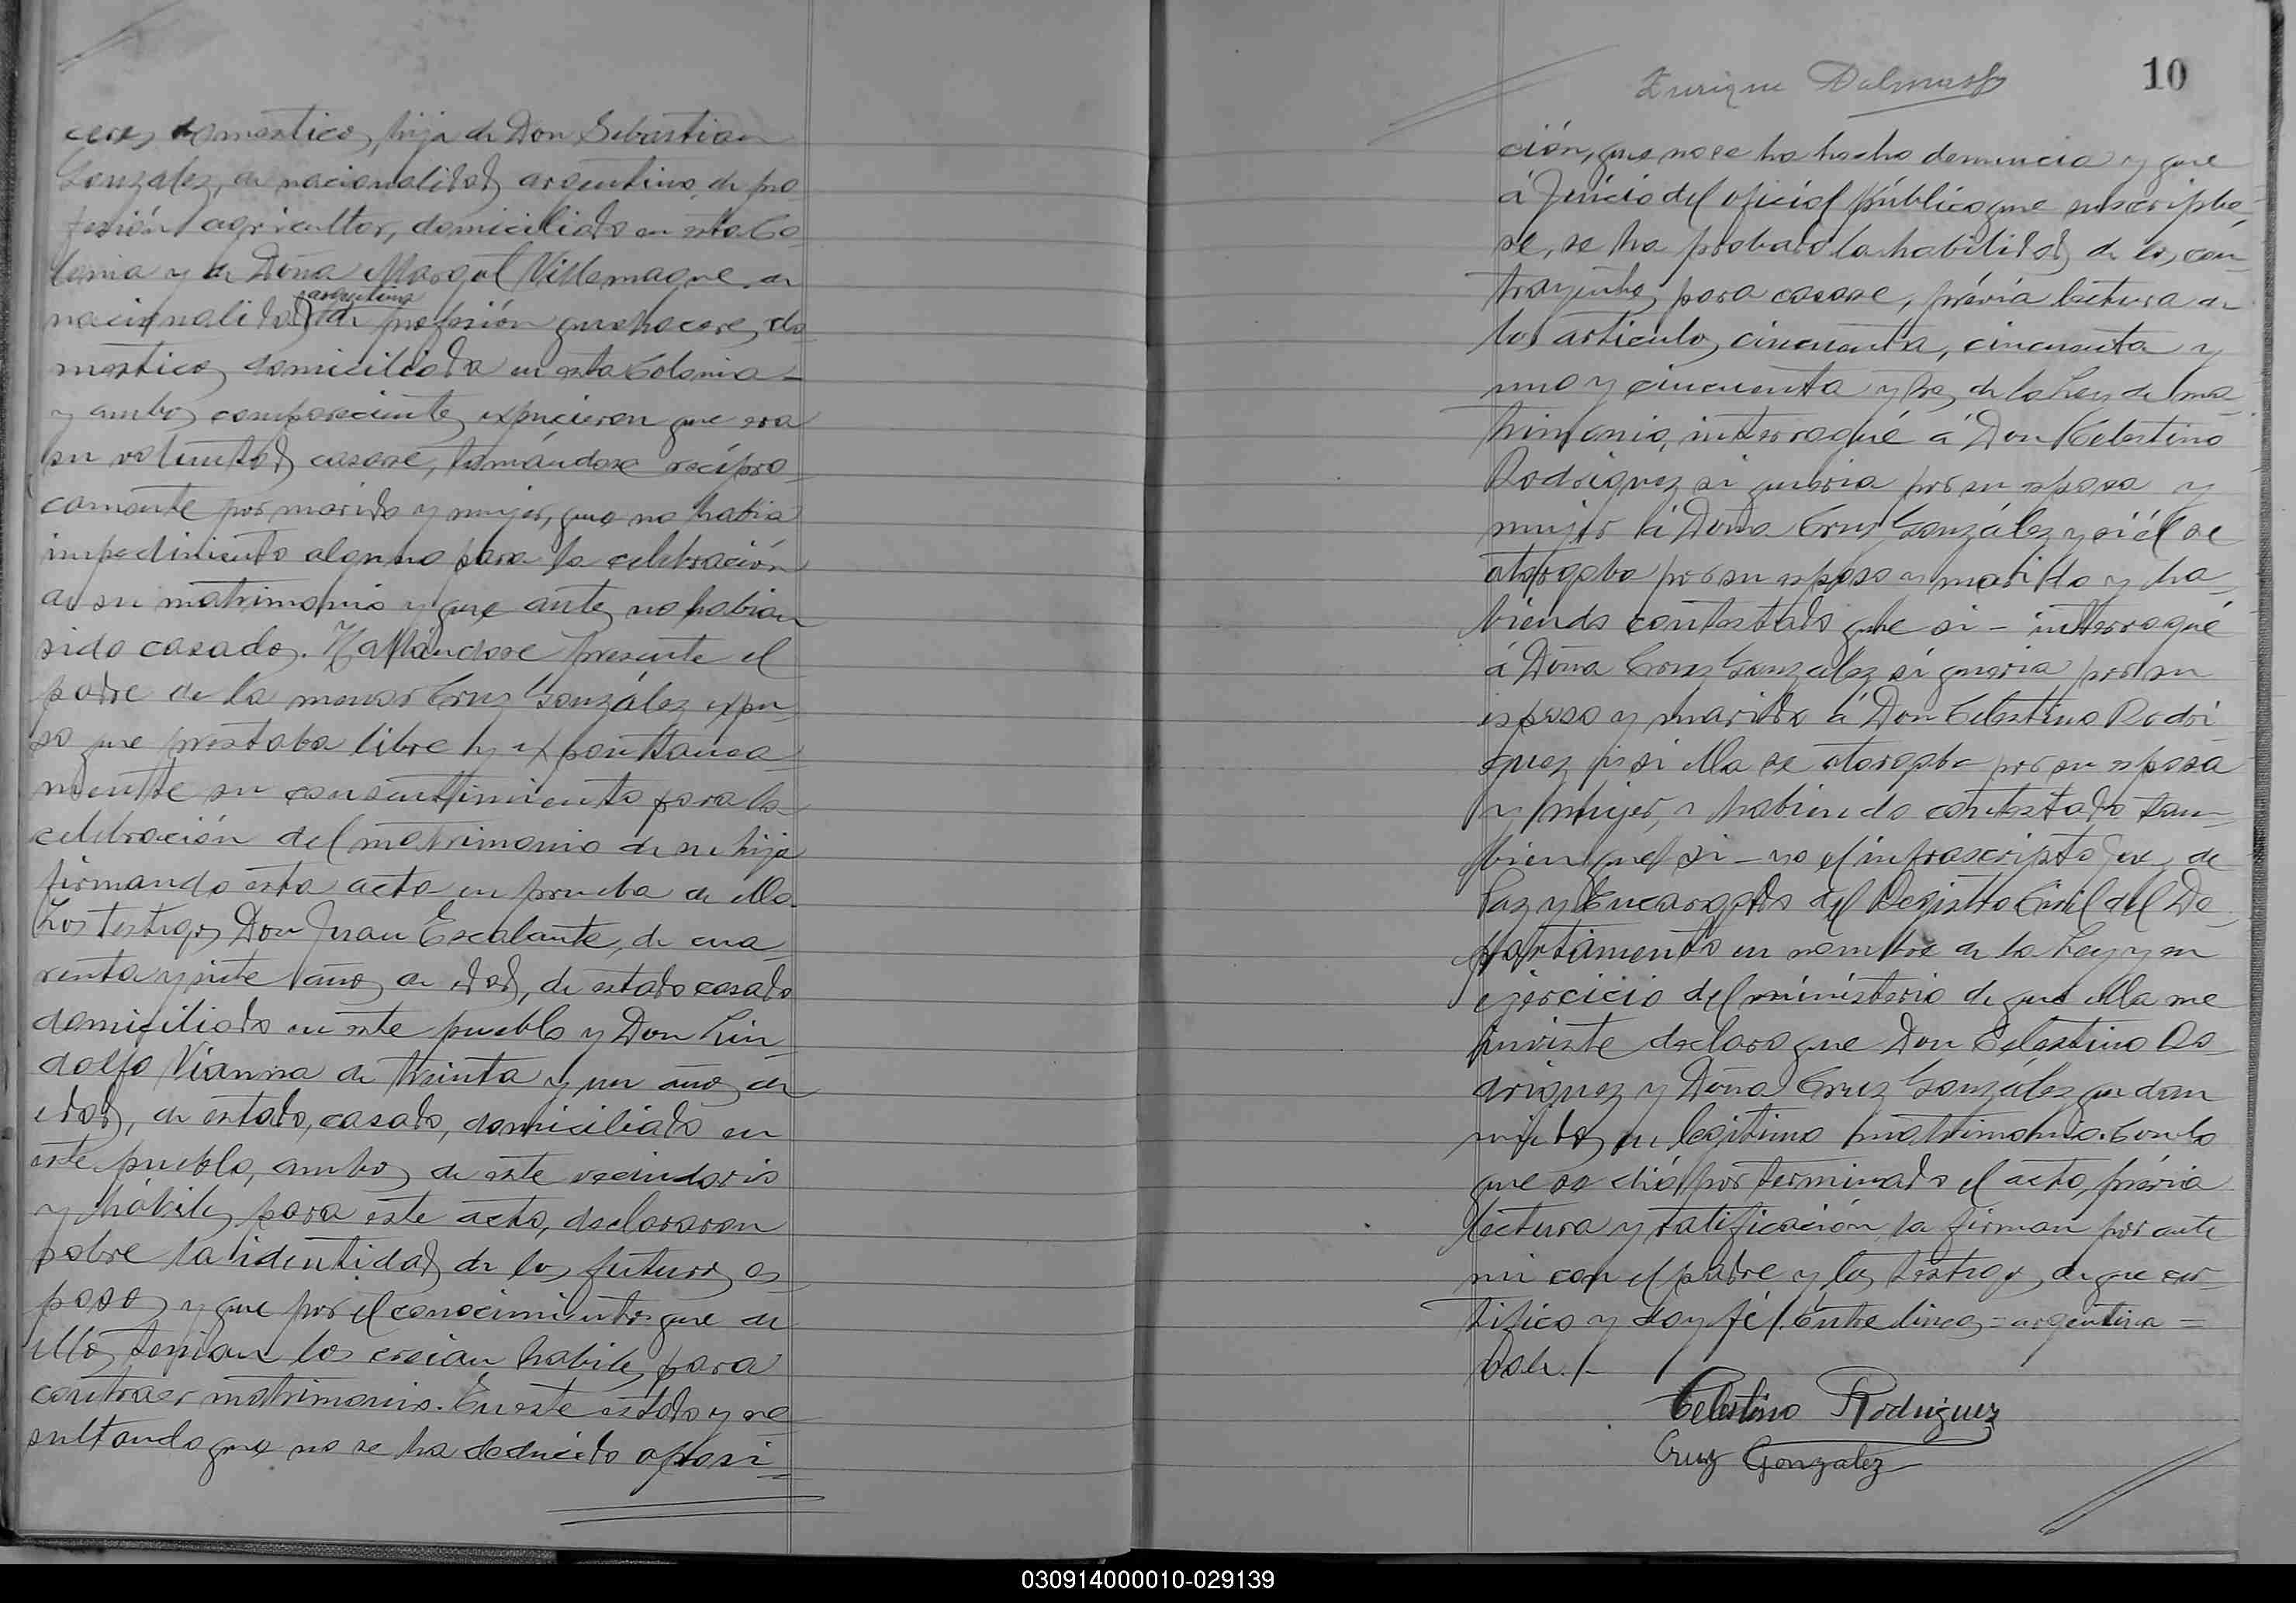 ceres domestico, hija de Don Sebastian
Gonzalez, de nacionalidad argentino de pro
fesión agricultor, domiciliado en esta Co
lonia y de Doña Margot Villemaque de
argentina
nacionalidad de profesión quehaceres do
mestico, domiciliada en esta Colonia
y ambos comparecientes expucieron que era
su voluntad casarse, tomándose recípro
camente por marido y mujer, que no habia
impedimiento alguno para la celebración
de su matrimonio y que antes no habian
sido casados. Hallándose presente el
padre de la menor Cruz González expu
so que prestaba libre y expontanea
mente su consentimiento para la
celebración del matrimonio de su hija
firmando esta acta en prueba de ello.
Los testigos Don Juan Escalante, de cua
renta y siete años de edad, de estado casado
domiciliado en este pueblo y Don Lin
dolfo Vianna de treinta y un años de
edad, de estado, casado, domiciliado en
este pueblo, ambos de este vecindario
y hábiles para este acto, declararon
sobre la identidad de los futuros es
posos y que por el conocimiento que de
ellos tenian los creian habiles para
contraer matrimonio. En este estado y re
sultando que no se ha deducido oposi
Enrique
10
ción, que no se ha hecho denuncia y que
á juicio del oficial público que suscripbe
se, se ha probado la habilidad de los con
trayentes para casarse, prévia lectura de
los articulos cincuenta, cincuenta y
uno y cincuenta y tres de la Ley de ma
trimonio, interrogué á Don Celestino
Rodriguez si queria por su esposa y
mujer á Doña Cruz González y si él se
otorgaba por su esposo y marido y ha
biendo contestado que si - interrogué
á Doña Cruz Gonzalez si queria por su
esposo y marido á Don Celestino Rodri
guez y si ella se otorgaba por su esposa
y mujer, y habiendo contestado tam
bien que si - yo el infrascripto Juez de
Paz y Encargado del Registro Civil del De
partamento en nombre de la Ley y en
ejercicio del ministerio de que ella me
inviste declaro que Don Celestino Ro
driguez y Doña Cruz González quedan
unidos en legitimo matrimonio. Con lo
que se dió por terminado el acto, prévia
lectura y ratificación, la firman por ante
mi con el padre y los testigos de que cer
tifico y doy fé. Entre lineas = argentina =
Vale. /-
Celestino Rodriguez
Cruz Gonzalez
030914000010-029139